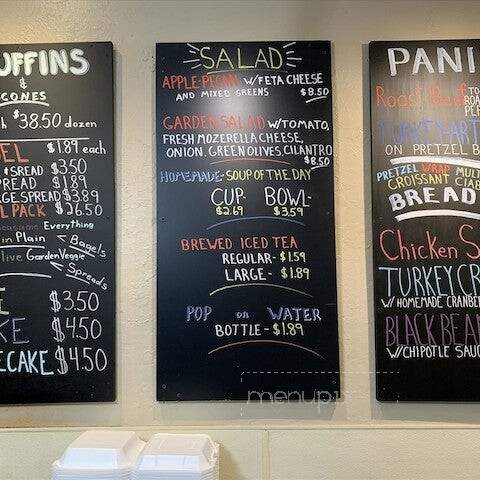 UFFINS
&
CONES
38.50 dozen
EL $1.89 each
$3.50
PREAD $1.89
GE SPREAD $3.89
L PACK $26.50
Everything
Plain Bagels
live Garden Veggie
Spreads
$3.50
KE $4.50
ECAKE $4.50
SALAD
APPLE-PECAN W/FETA CHEESE
AND MIXED GREENS $8.50
GARDEN SALAD W/TOMATO,
FRESH MOZERELLA CHEESE,
ONION, GREEN OLIVES, CILANTRO
$8.50
HOMEMADE-SOUP OF THE DAY
CUP- BOWL-
$2.69 $3.59
BREWED ICED TEA
REGULAR- $1.59
LARGE- $1.89
POP or WATER
BOTTLE-$1.89
menupix
PANI
Roast Beef
TURKEY
ON PRETZEL B
PRETZEL WRAP MULT
CROISSANT CIAB
BREAD
Chicken S
TURKEY CR
W/HOMEMADE CRANBER
BLACK BEAN
W/CHIPOTLE SAUC